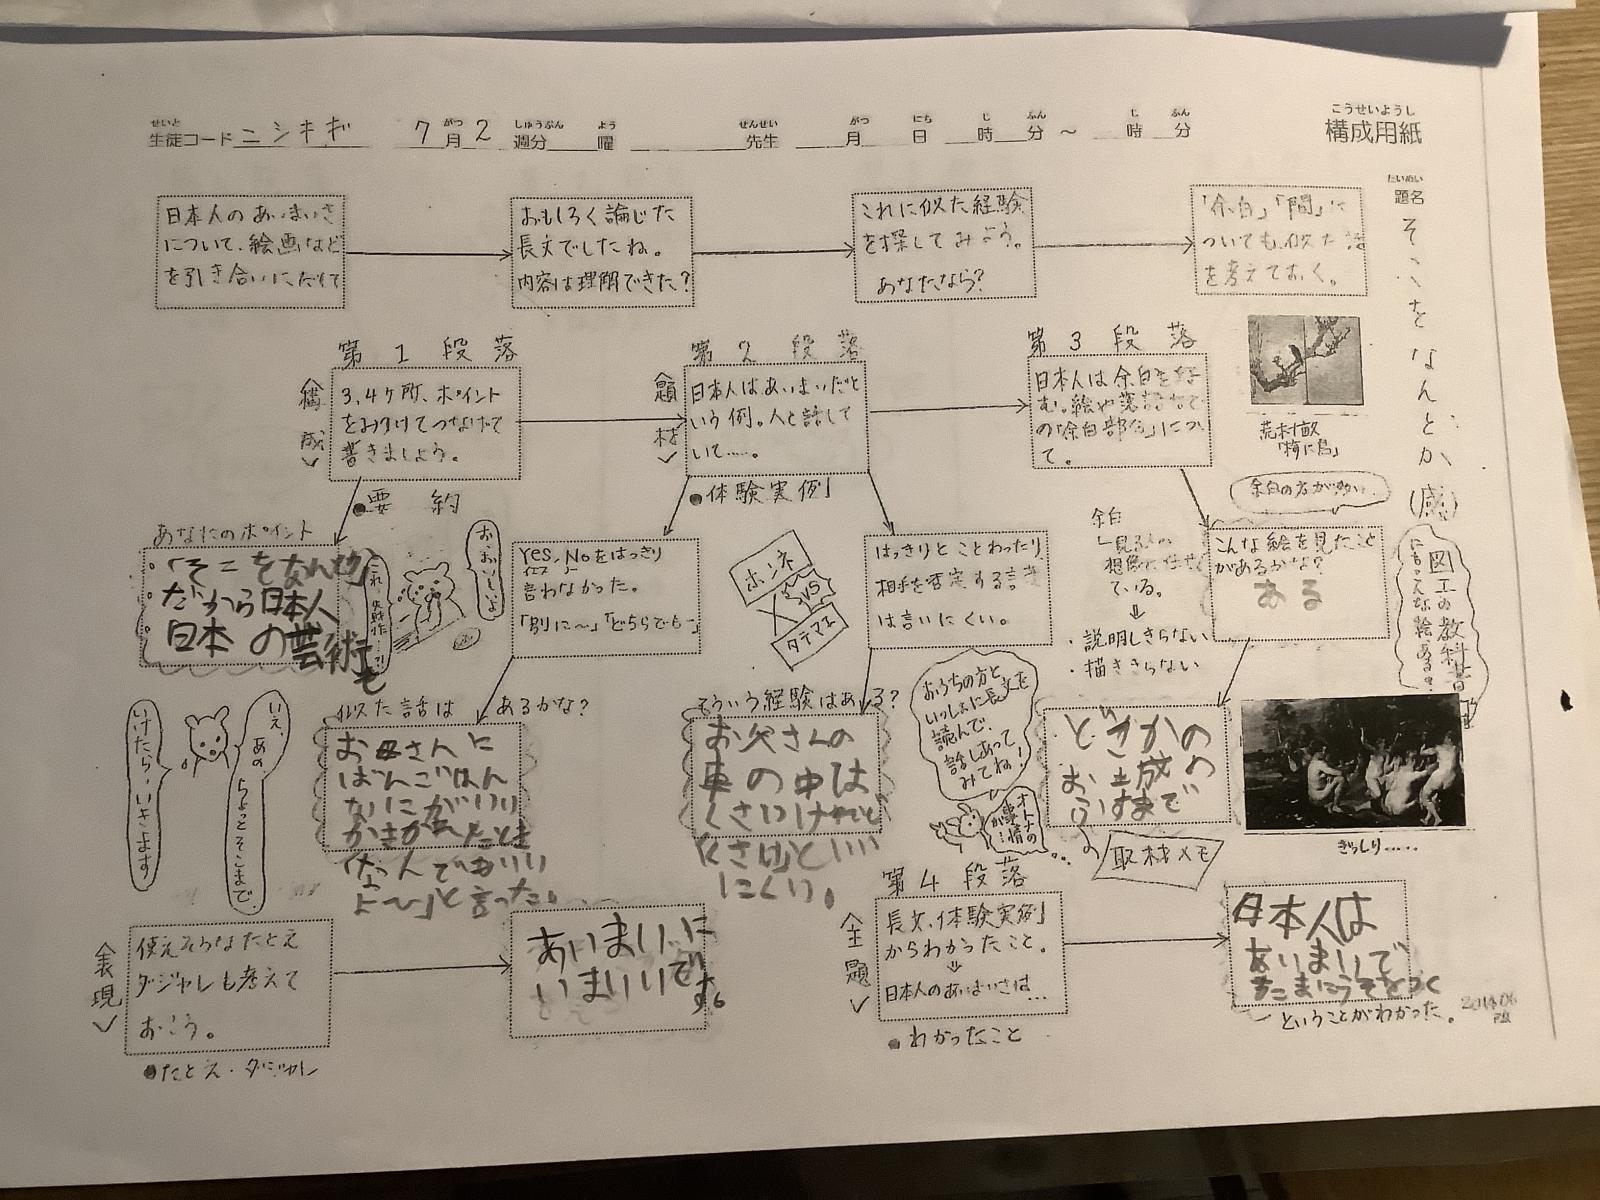 生徒コード ニシキギ 7月2週分 曜 先生 月 日 時 分 ～ 時 分
構成用紙
題名 そこをなんとか(感)
日本人のあいまいさ
について、絵画など
を引き合いにだして
おもしろく論じた
長文でしたね。
内容は理解できた?
これに似た経験
を探してみよう。
あなたなら?
「余白」「間」に
ついても、似た話
を考えておく。
第1段落
<構成>
3、4ヶ所、ポイント
をみつけてつなげて
書きましょう。
●要約
第2段落
<題材>
日本人はあいまいだと
いう例。人と話して
いて……。
●体験実例
第3段落
日本人は余白を好
む。絵や落語など
の「余白部分」につい
て。
荒木村敏
「梅に鳥」
余白の方が多い…
あなたのポイント
「そこをなんとか」
だから日本人
日本の芸術も
これ、失敗作…?!
おーおいしいよ
Yes,Noをはっきり
イエス ノー
言わなかった。
「別に〜」「どちらでも〜」
ホンネ
VS
タテマエ
はっきりとことわったり
相手を否定する言葉
は言いにくい。
余白
見る人の
想像に任せ
ている。
⇓
・説明しきらない
・描ききらない
こんな絵を見たこと
があるかな?
ある
図工の教科書
にもこんな絵ある?
いえ、あの、ちょっとそこまで。
いけたら、いきます
似た話は あるかな?
お母さんに
ばんごはん
なにがいい
かきかれたとき
「なんでもいい
よ〜」と言った。
そういう経験はある?
お父さんの
車の中は
くさいけれど
「くさい」といい
にくい。
おうちの方と
いっしょに長文を
読んで、
話しあって
みてね!
オトナの
事情
が…!
取材メモ
ぎっしり……
<表現>
使えそうなたとえ
ダジャレも考えて
おこう。
●たとえ・ダジャレ
あいまいに
いまいいです。
第4段落
<主題>
長文、体験実例
からわかったこと。
⇓
日本人のあいまいさは…
●わかったこと
日本人は
あいまいで
たまにうそをつく
ということがわかった。